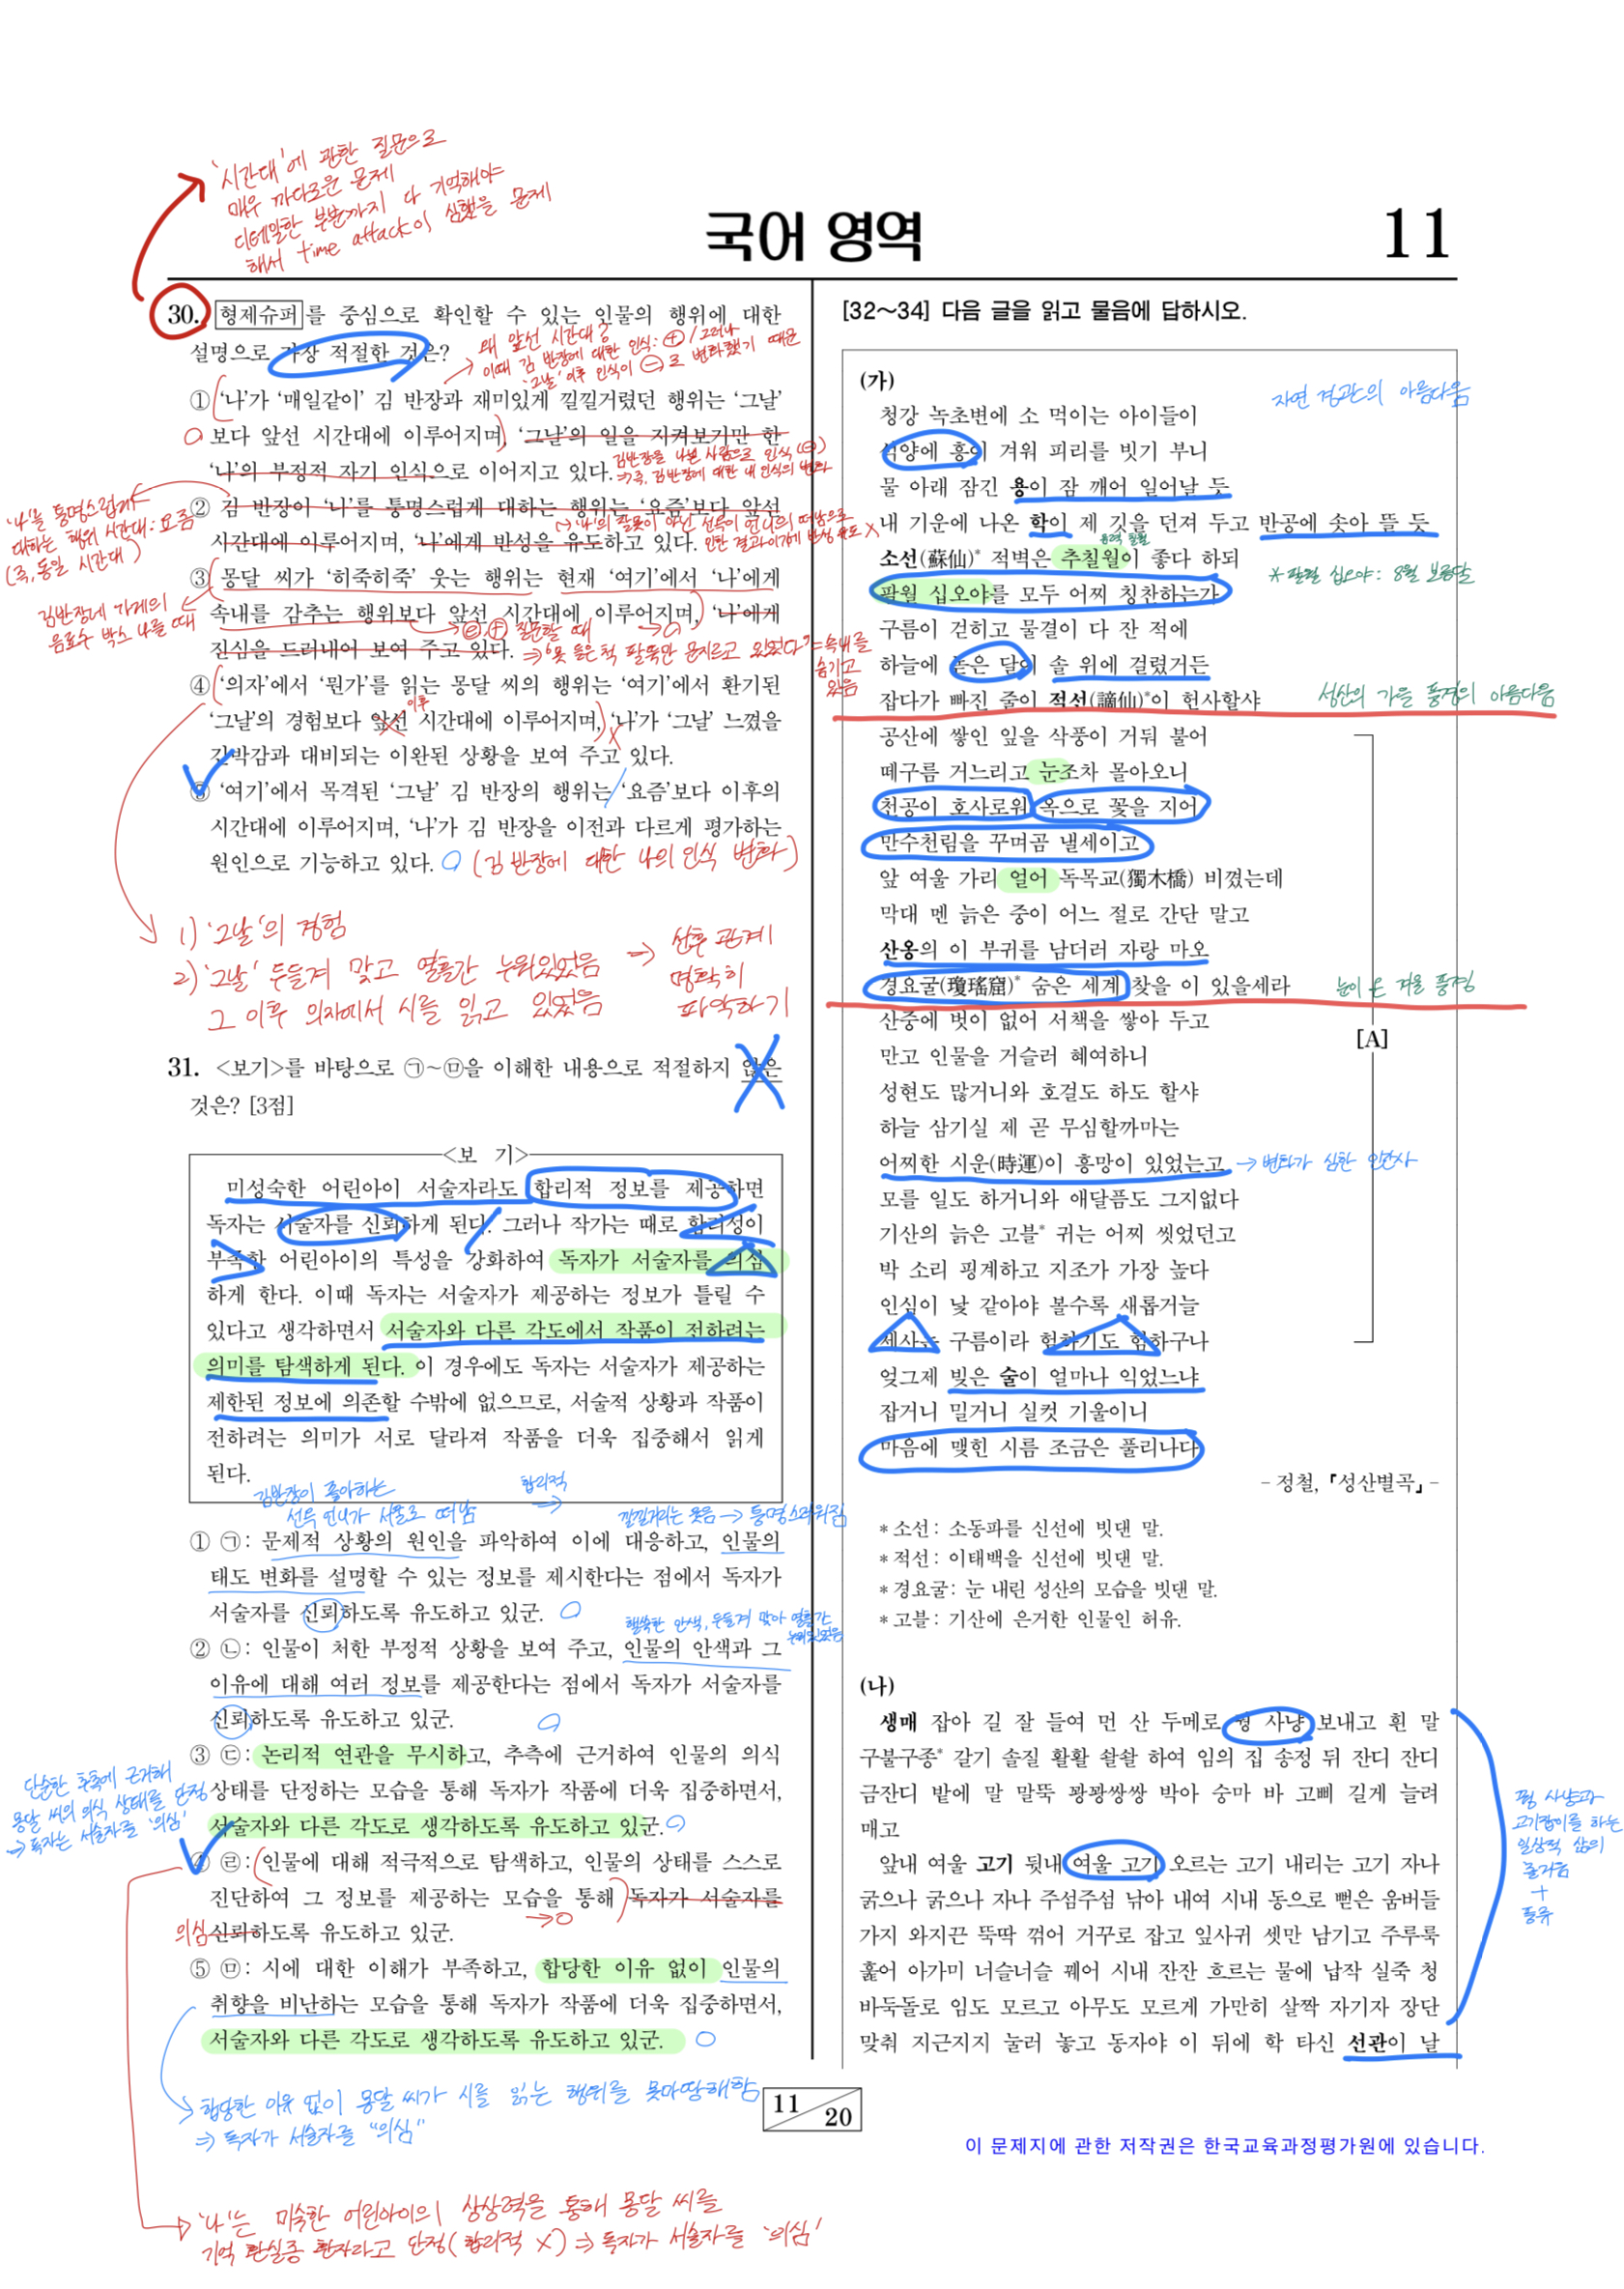 '시간대'에 관한 질문으로
매우 까다로운 문제
디테일한 부분까지 다 기억해야
해서 time attack이 심했을 문제
국어 영역
11
30. 형제슈퍼 를 중심으로 확인할 수 있는 인물의 행위에 대한
설명으로 가장 적절한 것은?
왜 앞선 시간대?
이때 김 반장에 대한 인식: ⊕ / 그러나
'그날' 이후 인식이 ⊖로 변화했기 때문
① '나'가 '매일같이' 김 반장과 재미있게 낄낄거렸던 행위는 '그날'
보다 앞선 시간대에 이루어지며, '그날'의 일을 지켜보기만 한
'나'의 부정적 자기 인식으로 이어지고 있다.
김반장을 나쁜 사람으로 인식 (⊖)
⇒즉, 김반장에 대한 내 인식의 변화
② 김 반장이 '나'를 퉁명스럽게 대하는 행위는 '요즘'보다 앞선
시간대에 이루어지며, '나'에게 반성을 유도하고 있다.
'나'의 잘못이 아닌 선옥이 언니의 떠남으로
인한 결과이기에 반성 유도 X
'나'를 퉁명스럽게
대하는 행위 시간대: 요즘
(즉, 동일 시간대)
③ 몽달 씨가 '히죽히죽' 웃는 행위는 현재 '여기'에서 '나'에게
속내를 감추는 행위보다 앞선 시간대에 이루어지며, '나'에게
진심을 드러내어 보여 주고 있다.
김반장네 가게의
음료수 박스 나를 때
질문할 때
⇒'못 들은 척 팔뚝만 문지르고 있었다'=속내를
숨기고
있음
④ '의자'에서 '뭔가'를 읽는 몽달 씨의 행위는 '여기'에서 환기된
'그날'의 경험보다 앞선 시간대에 이루어지며, '나'가 '그날' 느꼈을
이후
긴박감과 대비되는 이완된 상황을 보여 주고 있다.
⑤ '여기'에서 목격된 '그날' 김 반장의 행위는 '요즘'보다 이후의
시간대에 이루어지며, '나'가 김 반장을 이전과 다르게 평가하는
원인으로 기능하고 있다. (김 반장에 대한 나의 인식 변화)
1) '그날'의 경험
2) '그날' 두들겨 맞고 열흘간 누워있었음
그 이후 의자에서 시를 읽고 있었음
→ 선후 관계
명확히
파악하기
31. <보기>를 바탕으로 ㉠~㉤을 이해한 내용으로 적절하지 않은
것은? [3점]
<보 기>
미성숙한 어린아이 서술자라도 합리적 정보를 제공하면
독자는 서술자를 신뢰하게 된다. 그러나 작가는 때로 합리성이
부족한 어린아이의 특성을 강화하여 독자가 서술자를 의심
하게 한다. 이때 독자는 서술자가 제공하는 정보가 틀릴 수
있다고 생각하면서 서술자와 다른 각도에서 작품이 전하려는
의미를 탐색하게 된다. 이 경우에도 독자는 서술자가 제공하는
제한된 정보에 의존할 수밖에 없으므로, 서술적 상황과 작품이
전하려는 의미가 서로 달라져 작품을 더욱 집중해서 읽게
된다.
김반장이 좋아하는
선옥 언니가 서울로 떠남
합리적
→
낄낄거리는 웃음 → 퉁명스러워짐
① ㉠: 문제적 상황의 원인을 파악하여 이에 대응하고, 인물의
태도 변화를 설명할 수 있는 정보를 제시한다는 점에서 독자가
서술자를 신뢰하도록 유도하고 있군.
핼쑥한 안색, 두들겨 맞아 열흘간
누워있었음
② ㉡: 인물이 처한 부정적 상황을 보여 주고, 인물의 안색과 그
이유에 대해 여러 정보를 제공한다는 점에서 독자가 서술자를
신뢰하도록 유도하고 있군.
③ ㉢: 논리적 연관을 무시하고, 추측에 근거하여 인물의 의식
상태를 단정하는 모습을 통해 독자가 작품에 더욱 집중하면서,
서술자와 다른 각도로 생각하도록 유도하고 있군.
단순한 추측에 근거해
몽달 씨의 의식 상태를 단정
→ 독자는 서술자를 '의심'
④ ㉣: 인물에 대해 적극적으로 탐색하고, 인물의 상태를 스스로
진단하여 그 정보를 제공하는 모습을 통해 독자가 서술자를
신뢰하도록 유도하고 있군.
의심
⑤ ㉤: 시에 대한 이해가 부족하고, 합당한 이유 없이 인물의
취향을 비난하는 모습을 통해 독자가 작품에 더욱 집중하면서,
서술자와 다른 각도로 생각하도록 유도하고 있군.
합당한 이유 없이 몽달 씨가 시를 읽는 행위를 못마땅해함
⇒ 독자가 서술자를 "의심"
'나'는 미숙한 어린아이의 상상력을 통해 몽달 씨를
기억 환실증 환자라고 단정(합리적 X) ⇒ 독자가 서술자를 '의심'
[32~34] 다음 글을 읽고 물음에 답하시오.
(가)
자연 경관의 아름다움
청강 녹초변에 소 먹이는 아이들이
석양에 흥이 겨워 피리를 빗기 부니
물 아래 잠긴 용이 잠 깨어 일어날 듯
내 기운에 나온 학이 제 깃을 던져 두고 반공에 솟아 뜰 듯
소선(蘇仙)* 적벽은 추칠월이 좋다 하되
음력 칠월
팔월 십오야를 모두 어찌 칭찬하는가
* 팔월 십오야: 8월 보름달
구름이 걷히고 물결이 다 잔 적에
하늘에 돋은 달이 솔 위에 걸렸거든
잡다가 빠진 줄이 적선(謫仙)*이 헌사할샤
성산의 가을 풍경의 아름다움
공산에 쌓인 잎을 삭풍이 거둬 불어
떼구름 거느리고 눈조차 몰아오니
천공이 호사로워 옥으로 꽃을 지어
만수천림을 꾸며곰 낼세이고
앞 여울 가리 얼어 독목교(獨木橋) 비꼈는데
막대 멘 늙은 중이 어느 절로 간단 말고
산옹의 이 부귀를 남더러 자랑 마오
경요굴(瓊瑤窟)* 숨은 세계 찾을 이 있을세라
눈이 온 겨울 풍경
산중에 벗이 없어 서책을 쌓아 두고
만고 인물을 거슬러 혜여하니
성현도 많거니와 호걸도 하도 할샤
하늘 삼기실 제 곧 무심할까마는
어찌한 시운(時運)이 흥망이 있었는고
→ 변화가 심한 인간사
모를 일도 하거니와 애달픔도 그지없다
기산의 늙은 고불* 귀는 어찌 씻었던고
박 소리 핑계하고 지조가 가장 높다
인심이 낯 같아야 볼수록 새롭거늘
세사는 구름이라 험하기도 험하구나
엊그제 빚은 술이 얼마나 익었느냐
잡거니 밀거니 실컷 기울이니
마음에 맺힌 시름 조금은 풀리나다
[A]
- 정철, 「성산별곡」 -
* 소선: 소동파를 신선에 빗댄 말.
* 적선: 이태백을 신선에 빗댄 말.
* 경요굴: 눈 내린 성산의 모습을 빗댄 말.
* 고불: 기산에 은거한 인물인 허유.
(나)
생매 잡아 길 잘 들여 먼 산 두메로 꿩 사냥 보내고 흰 말
구불구종* 갈기 솔질 활활 솰솰 하여 임의 집 송정 뒤 잔디 잔디
금잔디 밭에 말 말뚝 꽝꽝쌍쌍 박아 숭마 바 고삐 길게 늘려
매고
앞내 여울 고기 뒷내 여울 고기 오르는 고기 내리는 고기 자나
굵으나 굵으나 자나 주섬주섬 낚아 내여 시내 동으로 뻗은 움버들
가지 와지끈 뚝딱 꺾어 거꾸로 잡고 잎사귀 셋만 남기고 주루룩
훑어 아가미 너슬너슬 꿰어 시내 잔잔 흐르는 물에 납작 실죽 청
바둑돌로 임도 모르고 아무도 모르게 가만히 살짝 자기자 장단
맞춰 지근지지 눌러 놓고 동자야 이 뒤에 학 타신 선관이 날
꿩 사냥과
고기잡이를 하는
일상적 삶의
즐거움
+
풍류
11
20
이 문제지에 관한 저작권은 한국교육과정평가원에 있습니다.